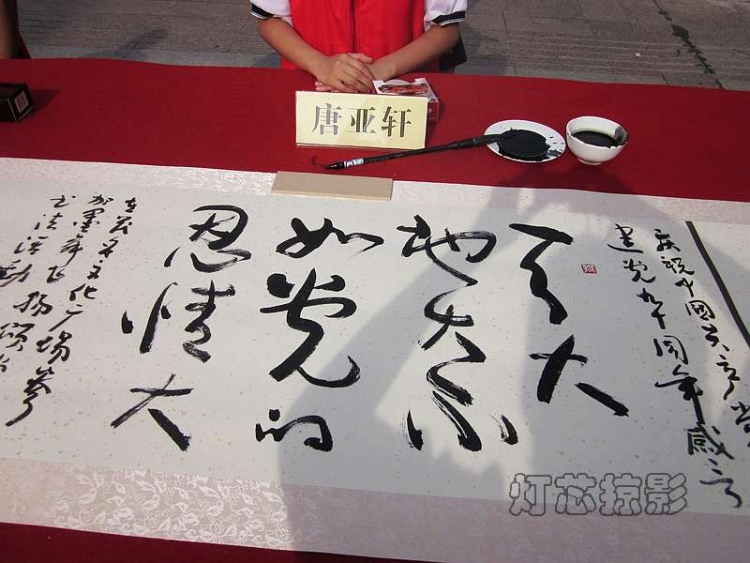 唐亚轩
庆祝中国共产党
建党九十周年感言
天大
地大不
如党的
恩情大
文化广场参
加墨舞飞扬颂
书法活动
灯芯掠影